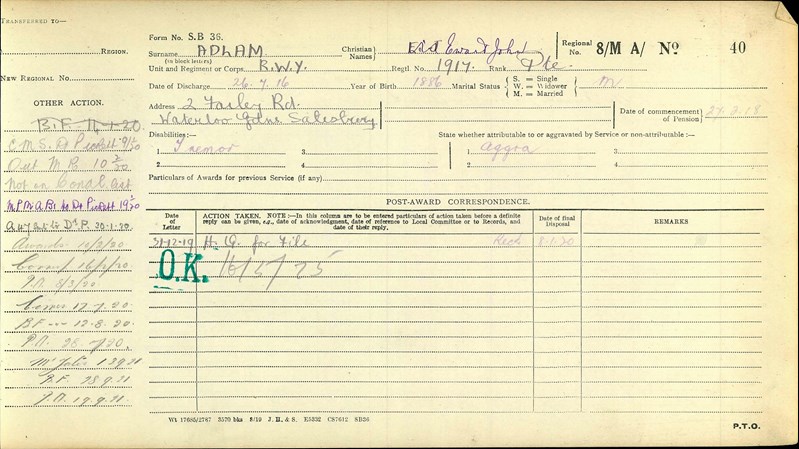 TRANSFERRED TO—
REGION.
NEW REGIONAL NO
OTHER ACTION.
B.F 14.1.20.
Not on
30.1.20.
Awards 16/2/20
Comee 17.7.20
B.F --- 12.8.20
P.M. 28 20
B.F. 28.9.21
P.M. 19.9.21
Form No. S.B 36.
Surname
(in block letters)
ADLAM
Christian Names
Edward John
Regional No. 8/M A/ No 40
Unit and Regiment or Corps
R.W.Y.
Regtl. No. 1917.
Rank Pte
Date of Discharge 26.7.16
Year of Birth 1886
Marital Status
S. = Single
W. = Widower
M. = Married
M
Address 2 Farley Rd.
Waterloo Gdns Salisbury
Date of commencement of Pension
Disabilities:—
1 Tremor
2
3
4
State whether attributable to or aggravated by Service or non-attributable:—
1 aggra
2
3
4
Particulars of Awards for previous Service (if any)
POST-AWARD CORRESPONDENCE.
Date of Letter
ACTION TAKEN. NOTE:—In this column are to be entered particulars of action taken before a definite reply can be given, e.g., date of acknowledgment, date of reference to Local Committee or to Records, and date of their reply.
Date of final Disposal
REMARKS
31-12-19 H.Q. for File
O.K.
Wt 17685/2787 3570 bks 8/19 J. H. & S. E5332 CS7612 SB36
P.T.O.